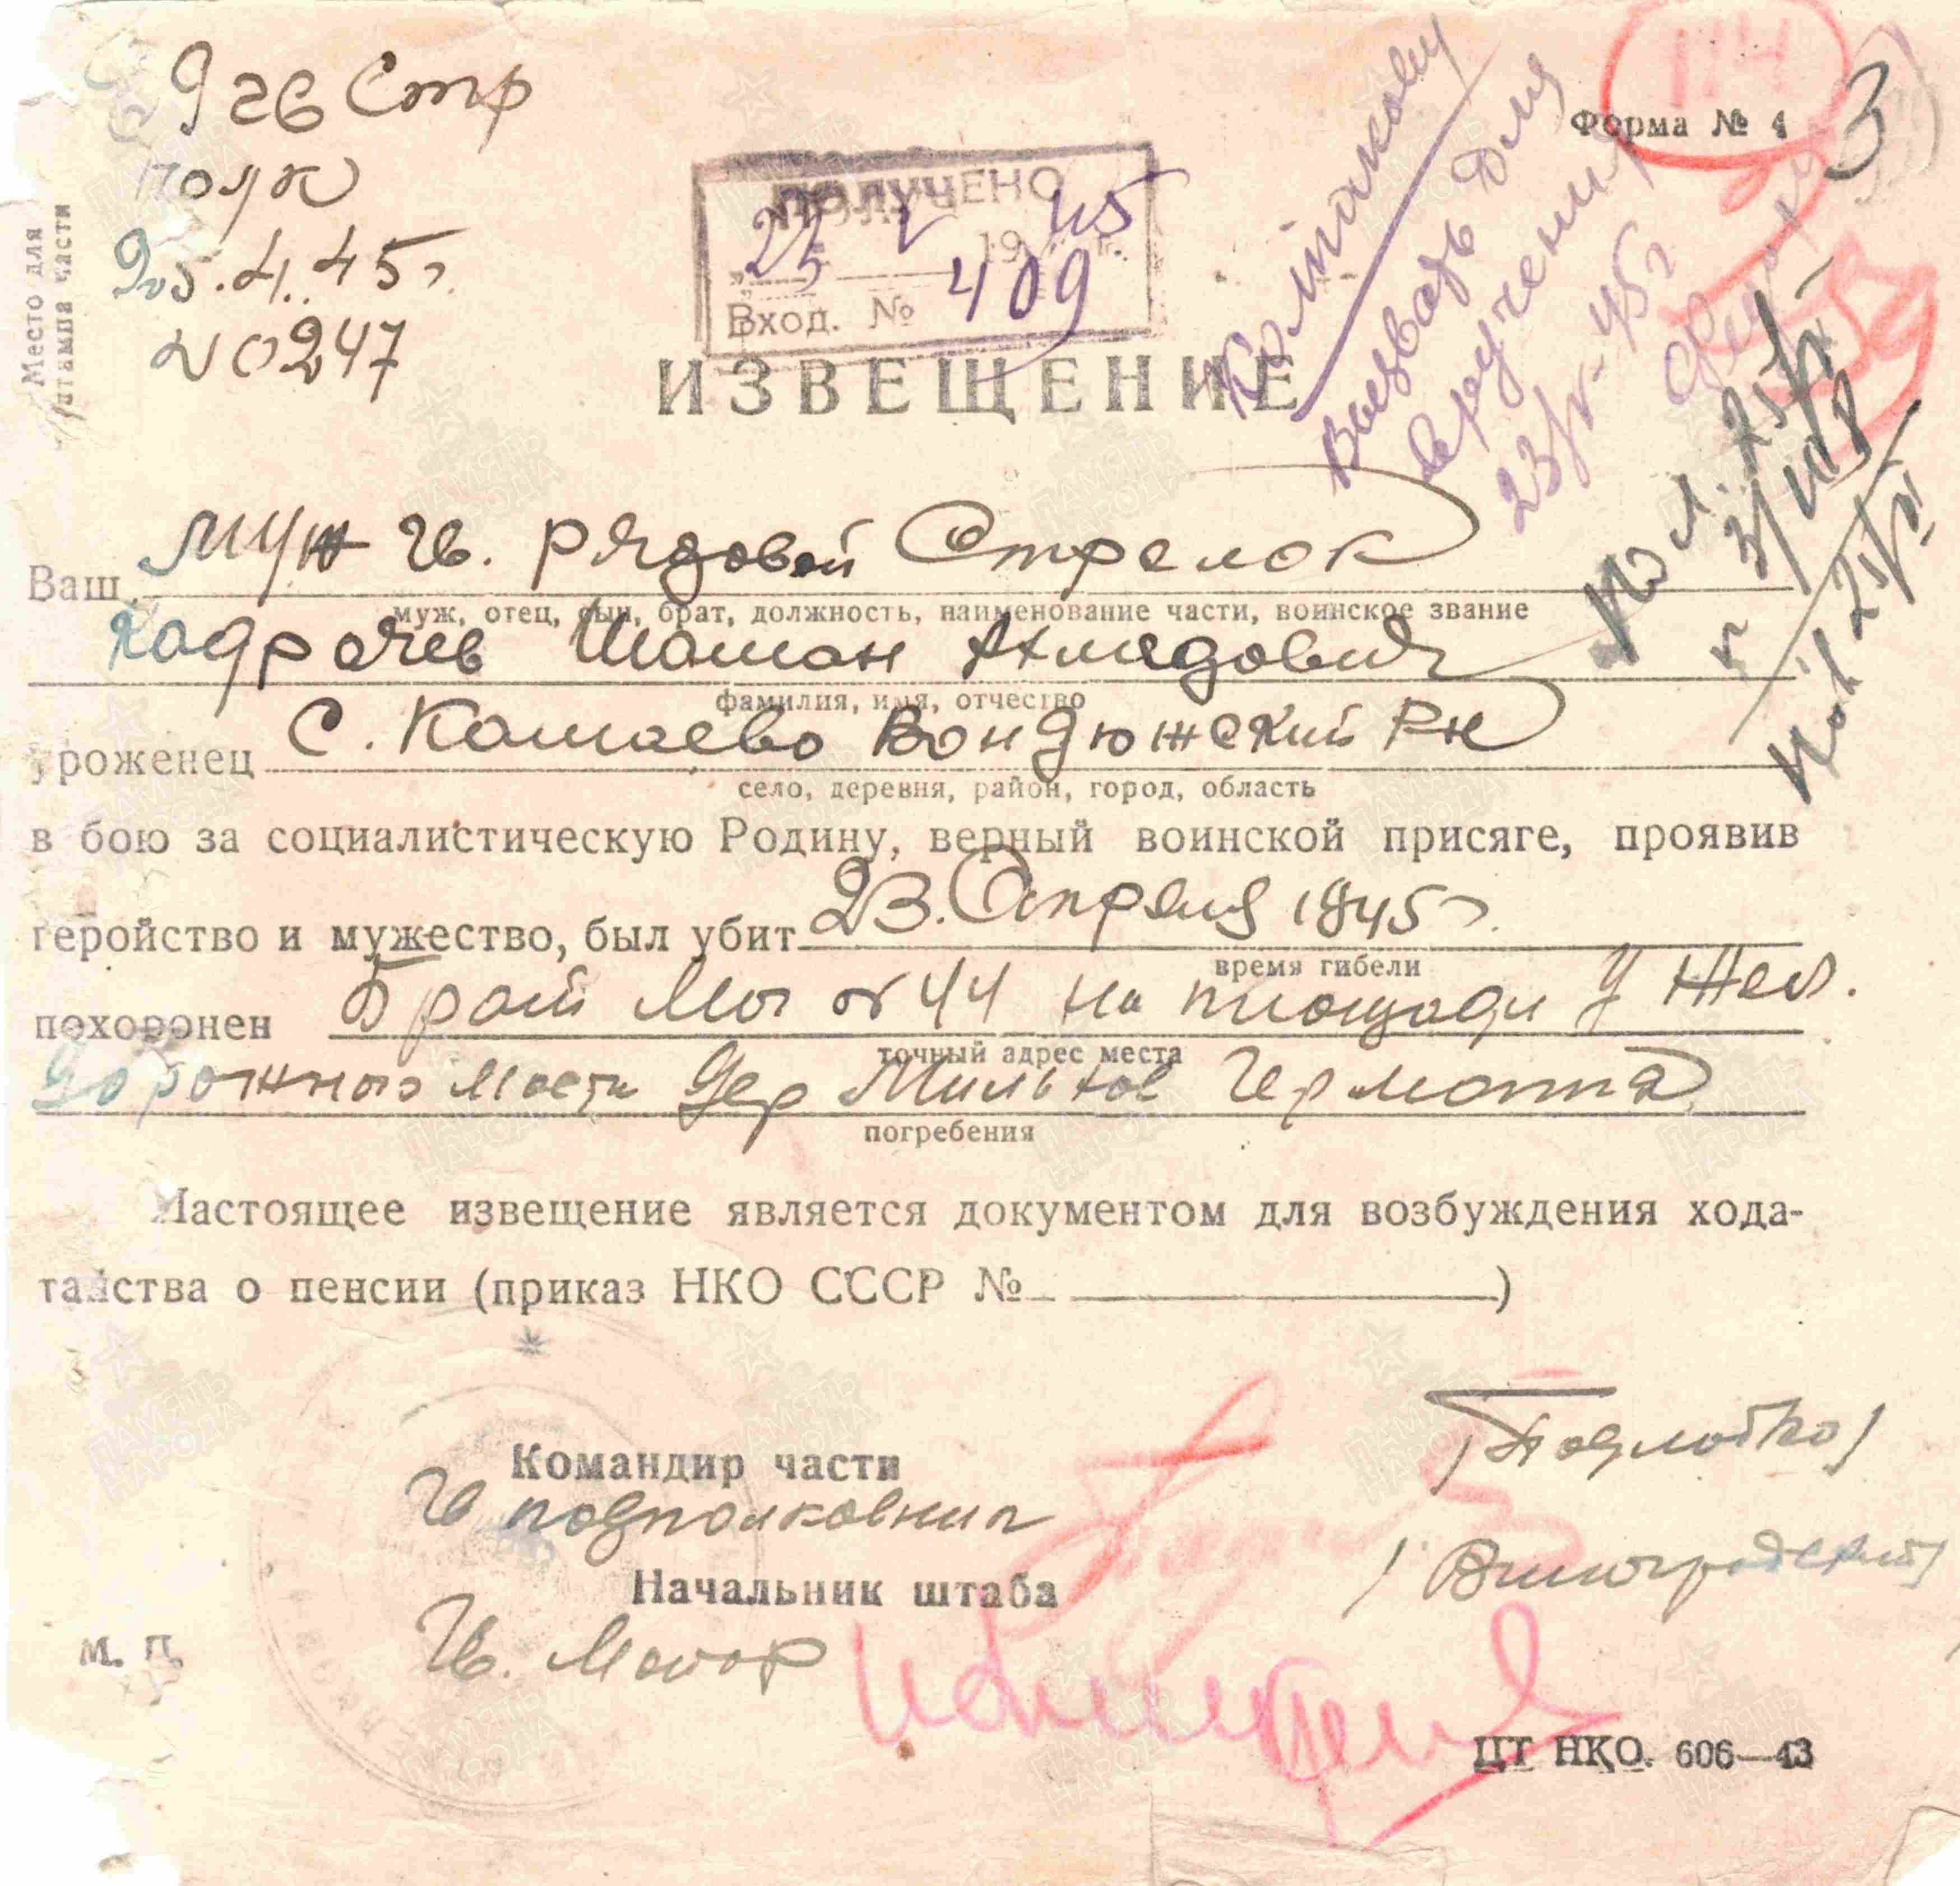 9 гв Стр
полк
25.4.45г.
N 0247
Место для
штампа части
Форма № 4
3
ПОЛУЧЕНО
23 V 1945 г.
Вход. № 409
Вызвать для
вручения
23/V-45г
ИЗВЕЩЕНИЕ
Ваш муж гв. рядовой Стрелок
муж, отец, сын, брат, должность, наименование части, воинское звание
Кадрачев Шаман Ахмедович
фамилия, имя, отчество
уроженец с. Камаево Бондюжский Рн
село, деревня, район, город, область
в бою за социалистическую Родину, верный воинской присяге, проявив
геройство и мужество, был убит 23. Апреля 1945г.
время гибели
похоронен Брат Мог № 44 на площади у Жел.
точный адрес места
дорожного моста дер Мильков Германия
погребения
Настоящее извещение является документом для возбуждения хода-
тайства о пенсии (приказ НКО СССР № )
Командир части
Гв подполковник
Начальник штаба
/Виноградский/
Гв. Маиор
М. П.
ЦТ НКО. 606—43